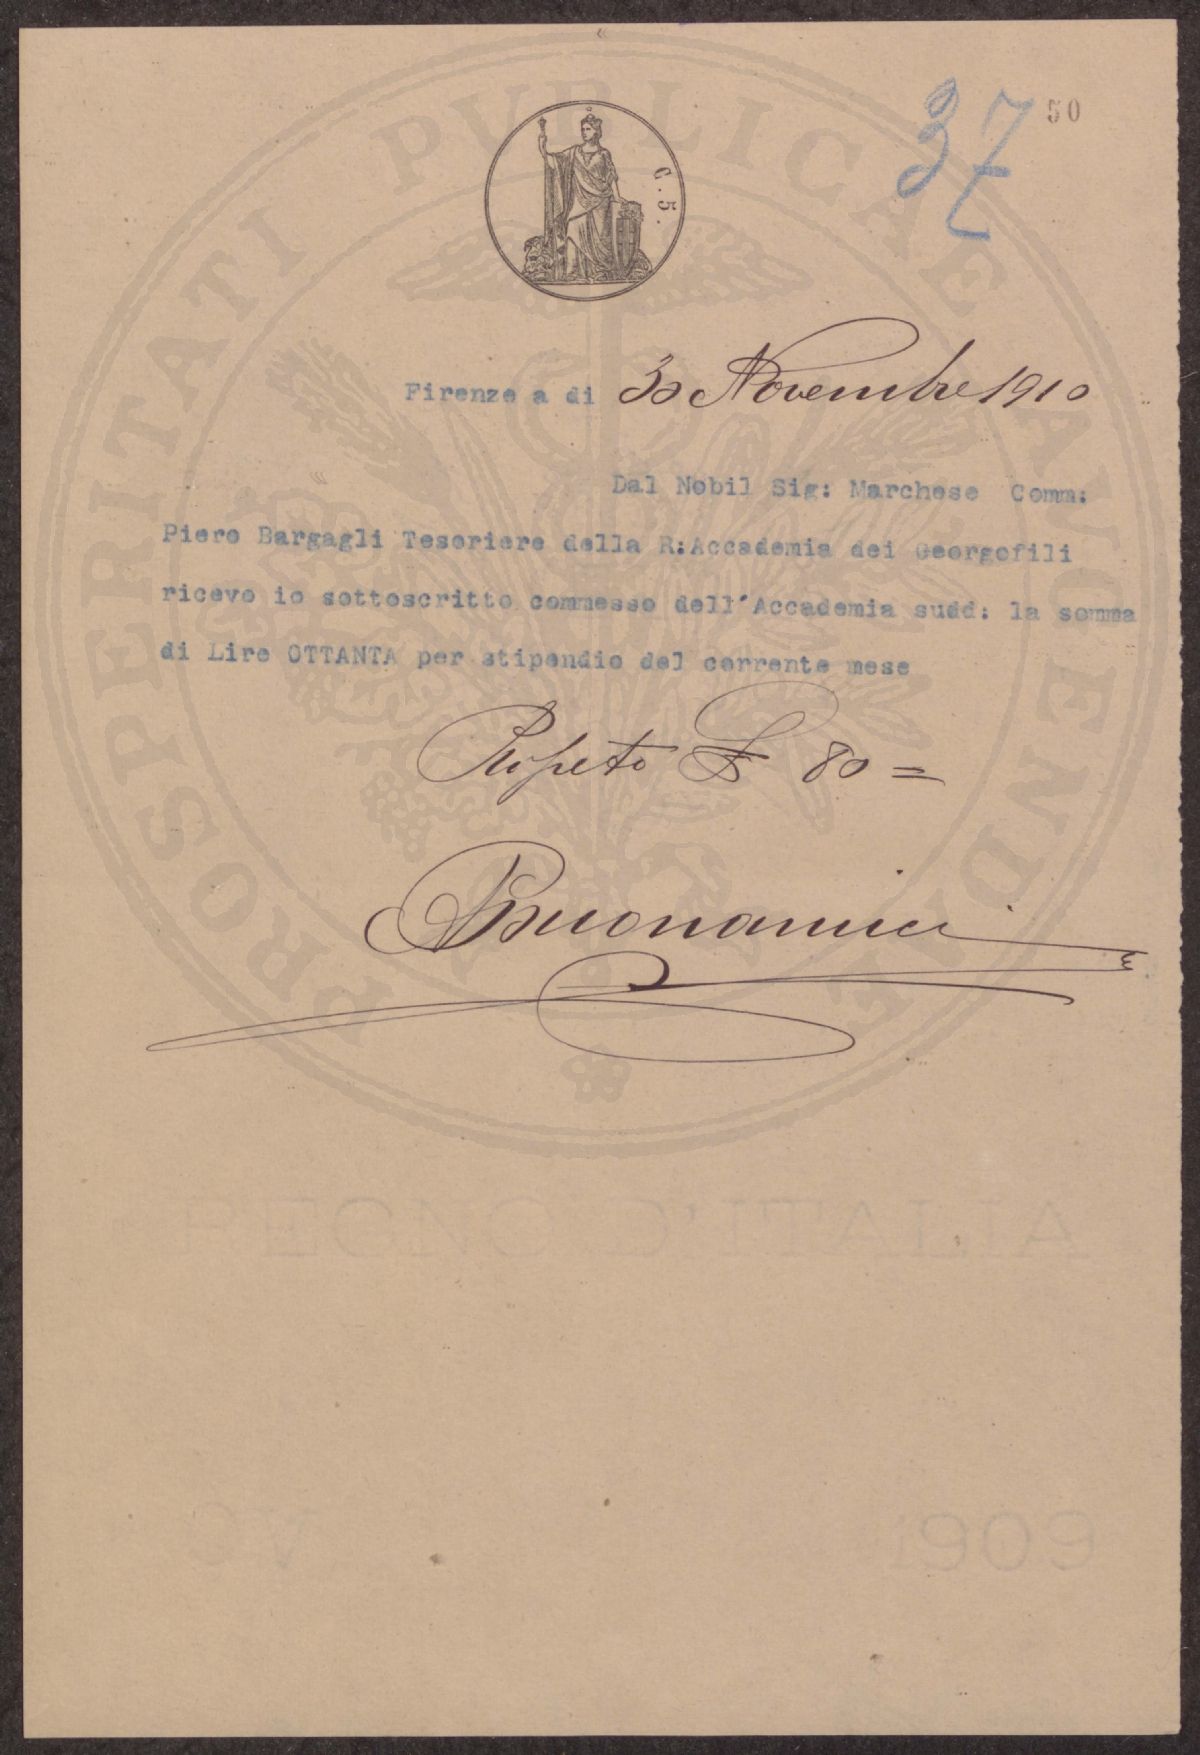 37
50
C. 5.
Firenze a di 30 Novembre 1910
Dal Nobil Sig: Marchese Comm:
Piero Bargagli Tesoriere della R:Accademia dei Georgofili
ricevo io sottoscritto commesso dell'Accademia sudd: la somma
di Lire OTTANTA per stipendio del corrente mese
Ripeto £ 80 =
Buonamici
PROSPERITATI PUBLICAE AVGENDAE
REGNO D'ITALIA
1909